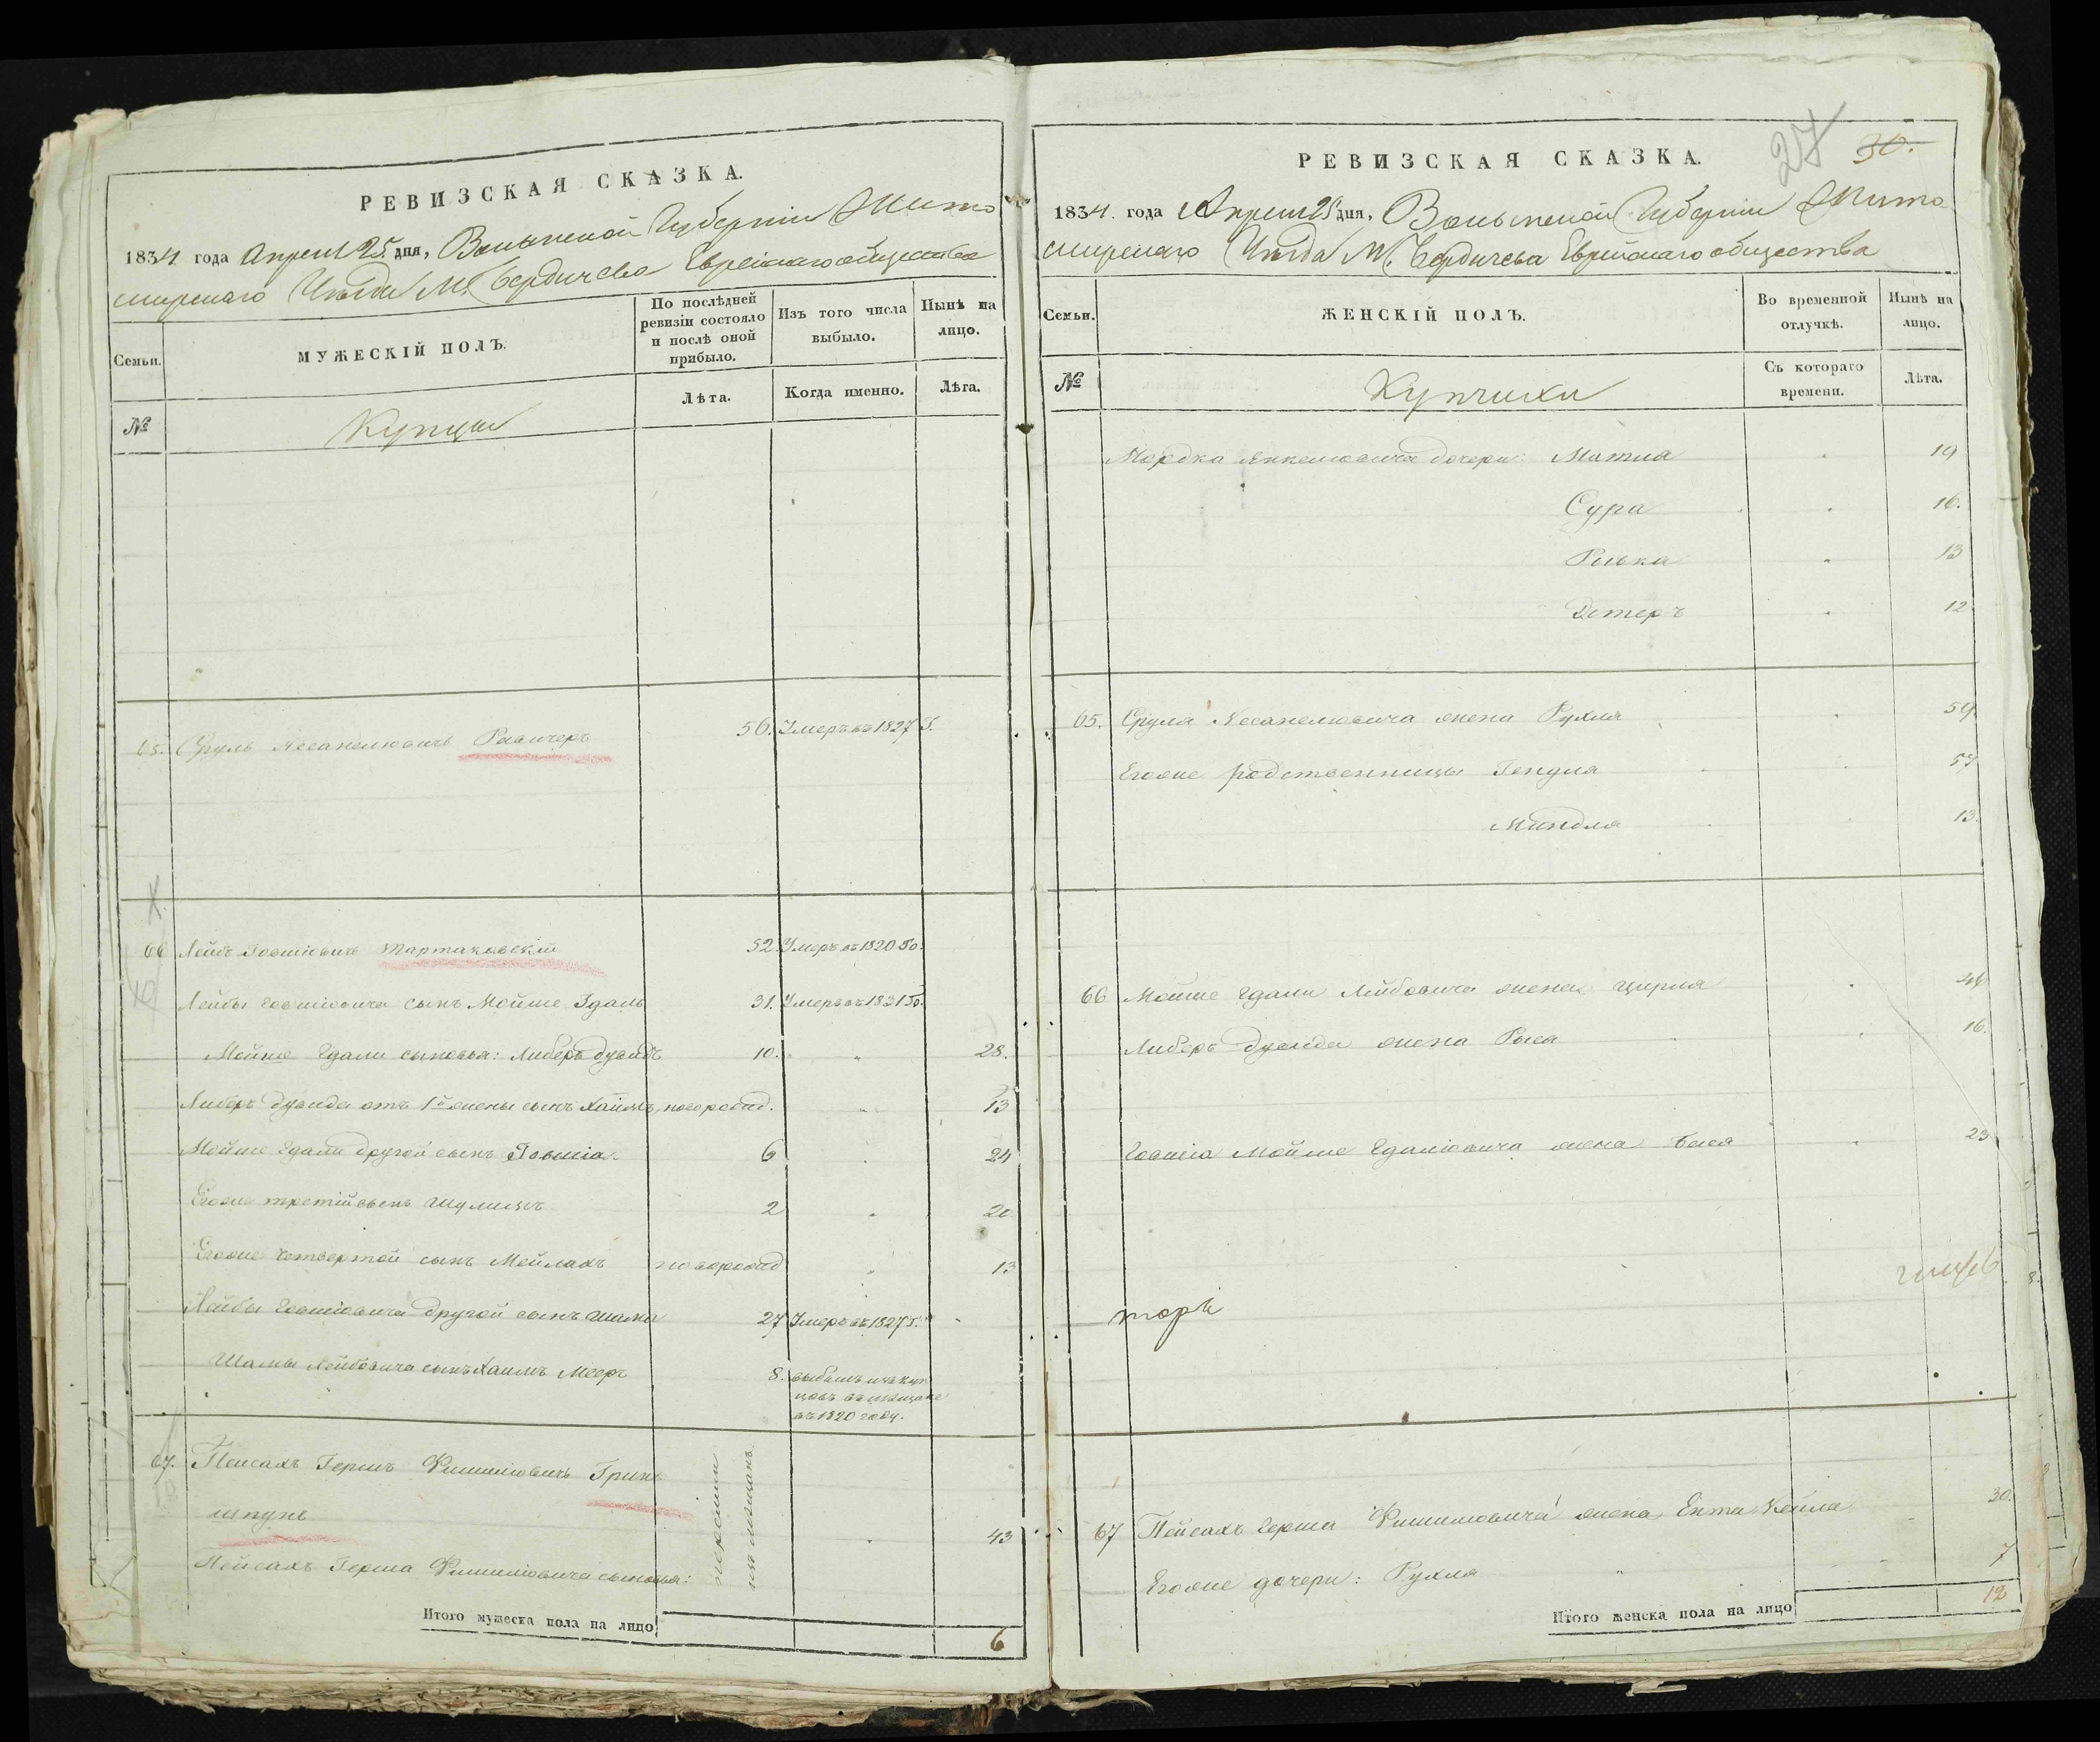 РЕВИЗСКАЯ СКАЗКА.
1834. года Апреля 25. дня, Волынской Губерніи Жито
мирскаго Уѣзда М. Бердичева Еврейскаго общества
Семьи.
МУЖЕСКІЙ ПОЛЪ.
По послѣдней ревизіи состояло и послѣ оной прибыло.
Изъ того числа выбыло.
Нынѣ на лицо.
№
Купцы
Лѣта.
Когда именно.
Лѣта.
65. Сруль Несанелювичъ Равичеръ 56. Умеръ въ 1827 Г.
66 Лейбъ Іовшіовичъ Тартаковскій 52. Умеръ въ 1820 Го.
Лейбы Іовшіовича сынъ Мойше Гдаль 31. Умеръ въ 1831 Го.
Мойше Гдали сыновья: Либеръ Дувидъ 10. 28.
Либеръ Дувида отъ 1й жены сынъ Хаимъ, новорожд. 13
Мойше Гдали другой сынъ Іовшіа 6 24
Егоже третій сынъ Шулимъ 2 20
Егоже четвертой сынъ Мейлахъ новорожд 13
Лейбы Іовшіовича другой сынъ Шама 27 Умеръ въ 1827 Г.
Шамы Лейбовича сынъ Хаимъ Мееръ 8. выбылъ изъ куп
цовъ въ мещане
въ 1820 году.
67. Пейсахъ Гершъ Фишиліовичъ Грин
шпунъ 43
изъ мещанъ
Пейсахъ Герша Фишиліовича сыновья:
Итого мужеска пола на лицо 6
27
30.
РЕВИЗСКАЯ СКАЗКА.
1834. года Апреля 25 дня, Волынской Губерніи Жито
мирскаго Уѣзда М. Бердичева Еврейскаго общества
Семьи.
ЖЕНСКІЙ ПОЛЪ.
Во временной отлучкѣ.
Нынѣ на лицо.
№
Купчихи
Съ котораго времени.
Лѣта.
Мордка Янкелювича дочери: Матла 19
Сура 16.
Ривка 13
Эстеръ 12
65. Сруля Несанелювича жена Рухля 59
Егоже родственницы Гендля 57
Миндля 13.
66 Мойше Гдали Лейбовича жена Цирля 46
Либеръ Дувида жена Рыся 16.
Іовшіа Мойше Гдаліовича жена Бися 23
67 Пейсахъ Герша Фишиліовича жена Ента Кейла 30.
Егоже дочери: Рухля 7
Итого женска пола на лицо 12